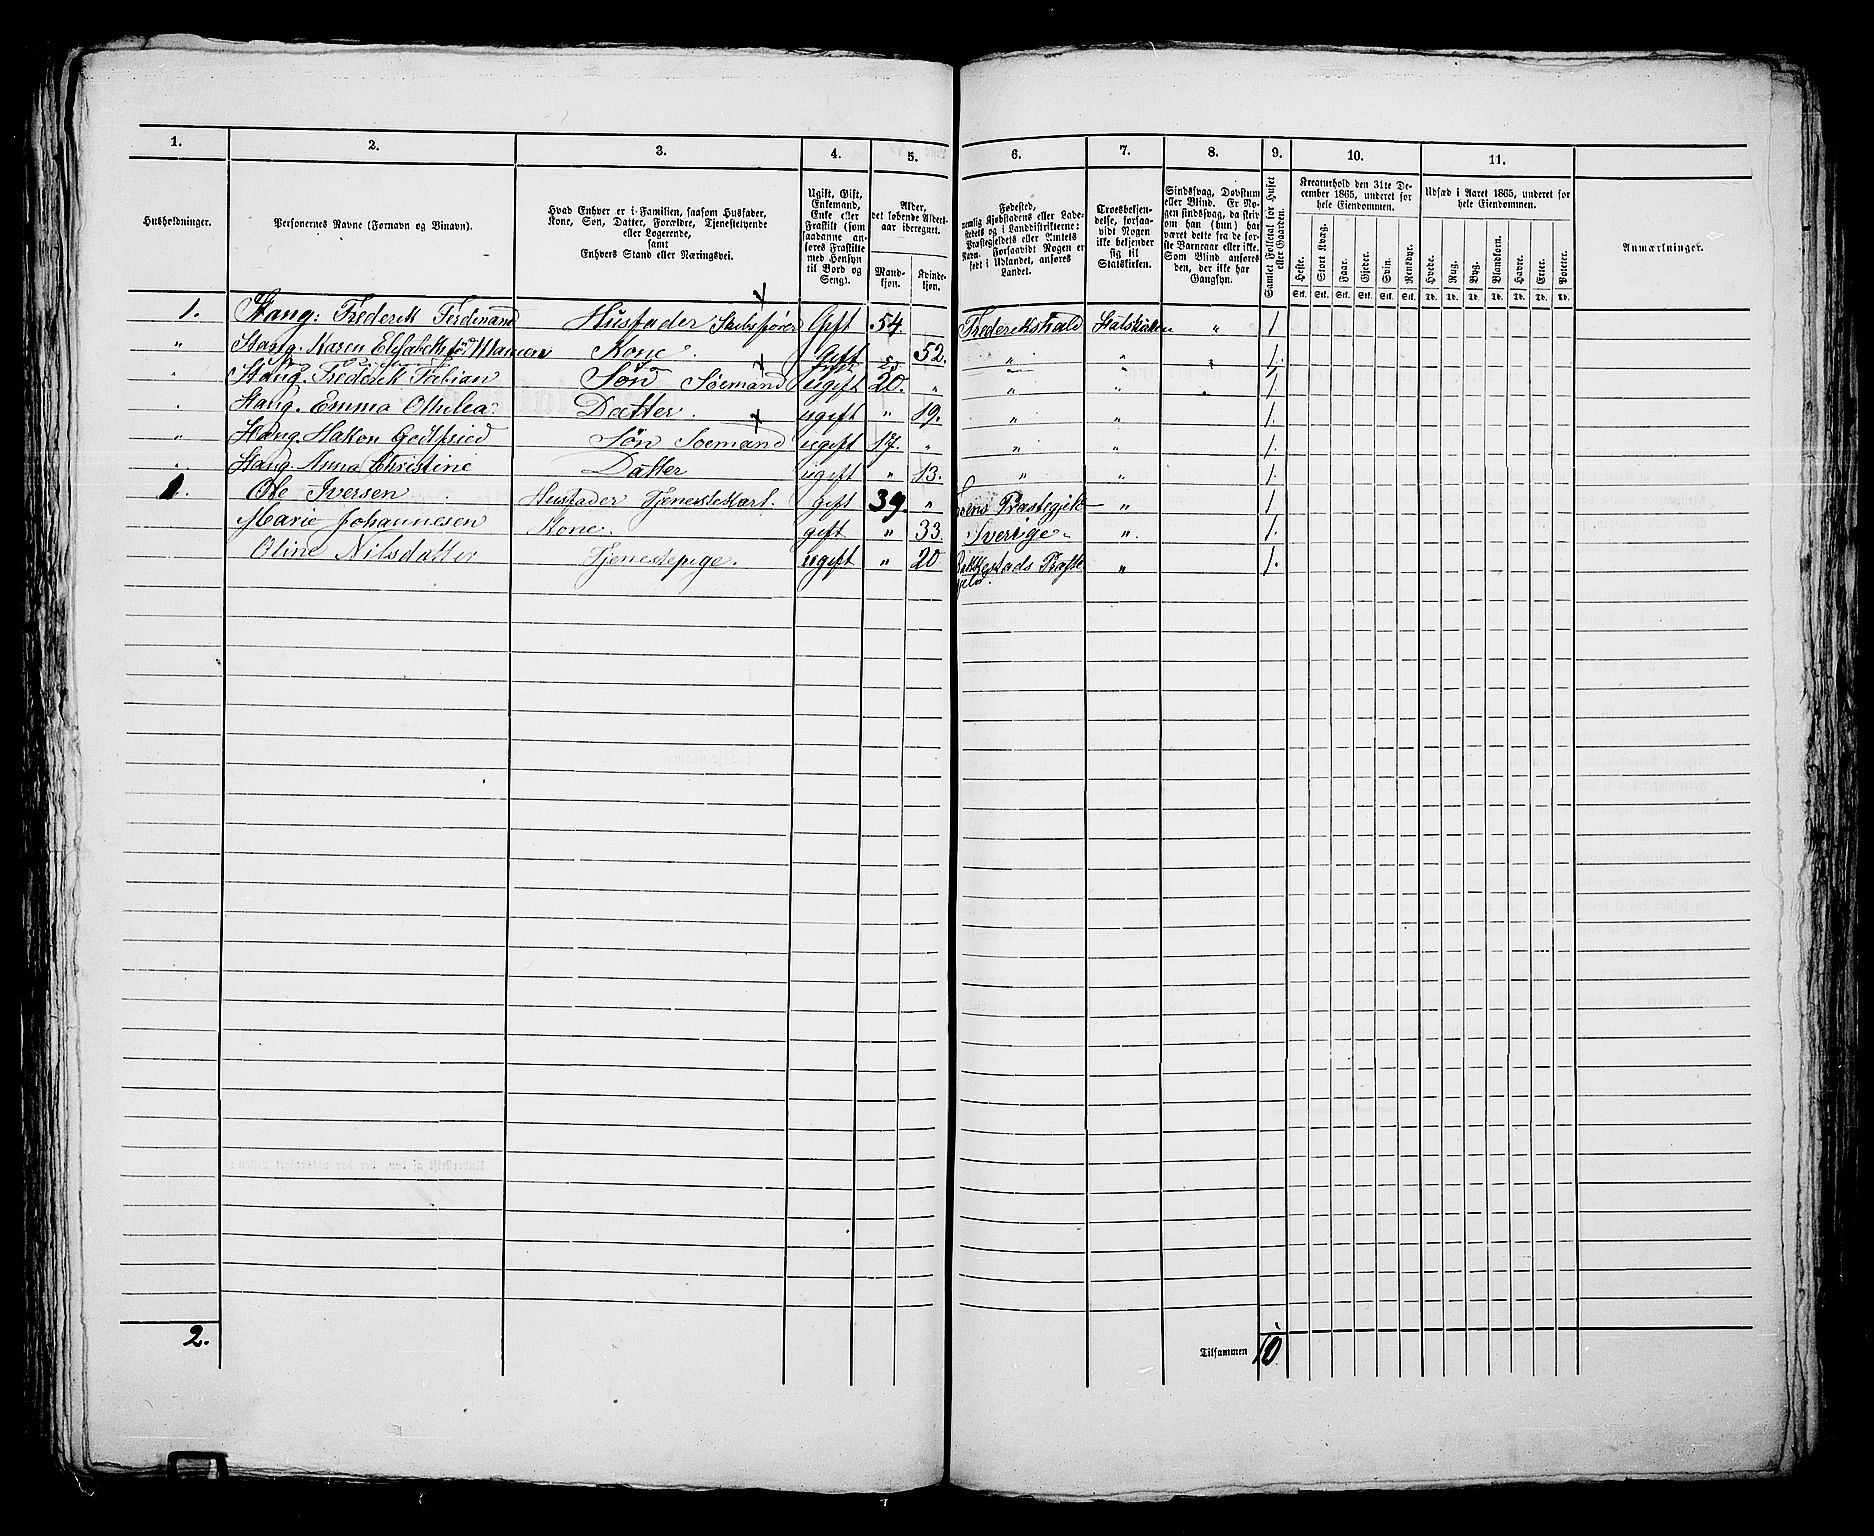 1. 2. 3. 4. 5. 6. 7. 8. 9. 10. 11.
Husholdninger.
Personernes Navne (Fornavn og Binavn).
Hvad Enhver er i Familien, saasom Husfader,
Kone, Søn, Datter, Forældre, Tjenestetyende
eller Logerende,
samt
Enhvers Stand eller Næringsvei.
Ugift, Gift,
Enkemand,
Enke eller
Fraskilt (som
saadanne an-
føres Fraskilte
med Hensyn
til Bord og
Seng).
Alder,
det løbende Alders-
aar iberegnet.
Mand-
kjøn.
Kvinde-
kjøn.
Fødested,
nemlig Kjøbstadens eller Lade-
stedets og i Landdistrikterne:
Præstegjeldets eller Amtets
Navn. Forsaavidt Nogen er
født i Udlandet, anføres
Landet.
Troesbekjen-
delse, forsaa-
vidt Nogen
ikke bekjender
sig til
Statskirken.
Sindssvag, Døvstum
eller Blind. Er No-
gen sindssvag, da skriv
om han (hun) har
været dette fra de før-
ste Barneaar eller ikke.
Som Blind anføres
den, der ikke har
Gangsyn.
Samlet Folketal for Huset
eller Gaarden.
Kreaturhold den 31te De-
cember 1865, underet for
hele Eiendommen.
Heste. Stort Kvæg. Faar. Gjeder. Svin. Rensdyr.
Stk. Stk. Stk. Stk. Stk. Stk.
Udsæd i Aaret 1865, underet for
hele Eiendommen.
Hvede. Rug. Byg. Blandkorn. Havre. Erter. Poteter.
Td. Td. Td. Td. Td. Td. Td.
Anmærkninger.
1. Stang: Frederik Ferdinand Husfader Skibsfører Gift 54. Frederikshald Statskirken " 1.
" Stang. Karen Elisabeth fød Mamen Kone. Gift " 52. " " " 1.
" Stang. Frederik Fabian Søn Søemand ugift 20. " " " " 1
" Stang. Emma Othilia Datter. ugift " 19. " " 1.
" Stang. Hakon Godtfried Søn Søemand ugift 17. " " " 1.
" Stang. Anna Christine Datter ugift " 13. " " 1.
1. Ole Iversen Husfader Tjenestekarl. gift 39. " Præstegjeld " 1.
Marie Johannesen Kone. gift " 33. Sverige. " 1.
Oline Nilsdatter Tjenestepige. ugift " 20 " 1.
2.
Tilsammen 10